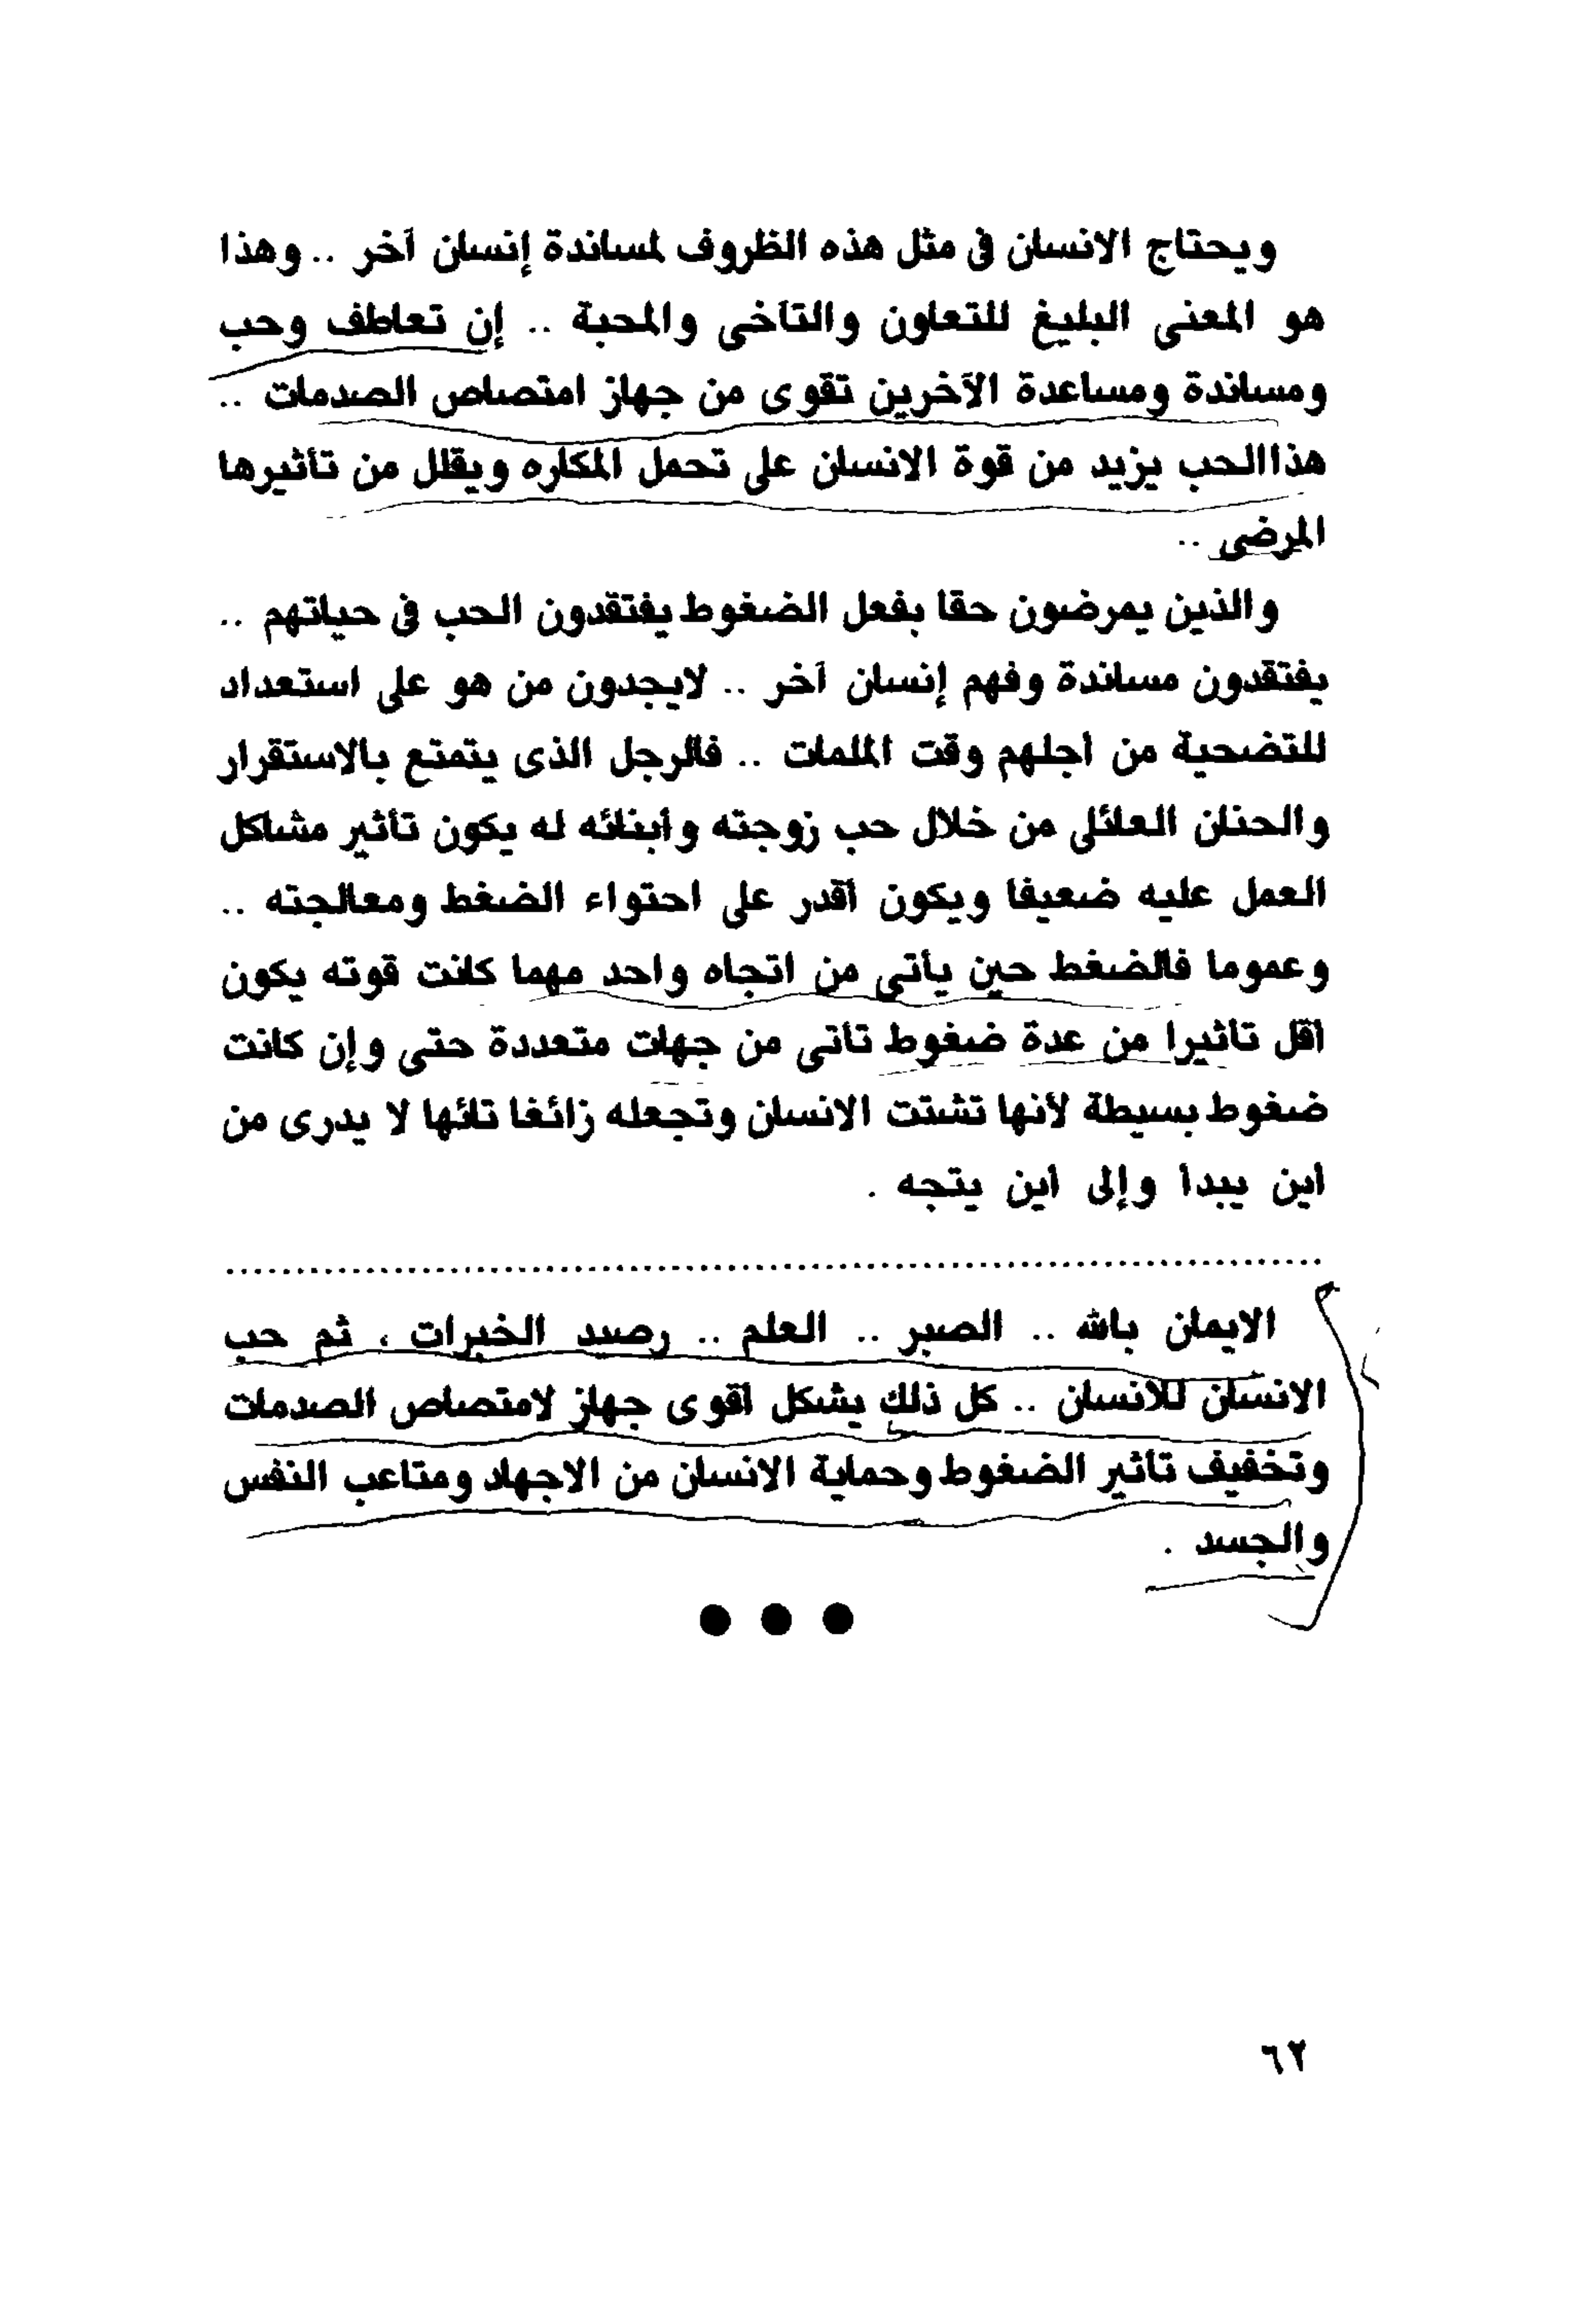 ويحتاج الانسان فى مثل هذه الظروف لمساندة إنسان آخر .. وهذا
هو المعنى البليغ للتعاون والتآخى والمحبة .. إن تعاطف وحب
ومساندة ومساعدة الآخرين تقوى من جهاز امتصاص الصدمات ..
هذا الحب يزيد من قوة الانسان على تحمل المكاره ويقلل من تأثيرها
المرضى ..
والذين يمرضون حقا بفعل الضغوط يفتقدون الحب فى حياتهم ..
يفتقدون مساندة وفهم إنسان آخر .. لايجدون من هو على استعداد
للتضحية من أجلهم وقت الملمات .. فالرجل الذى يتمتع بالاستقرار
والحنان العائلى من خلال حب زوجته وأبنائه له يكون تأثير مشاكل
العمل عليه ضعيفا ويكون أقدر على احتواء الضغط ومعالجته ..
وعموما فالضغط حين يأتى من اتجاه واحد مهما كانت قوته يكون
أقل تأثيرا من عدة ضغوط تأتى من جهات متعددة حتى وإن كانت
ضغوط بسيطة لأنها تشتت الانسان وتجعله زائغا تائها لا يدرى من
أين يبدأ وإلى أين يتجه .
................................................................................
الايمان بالله .. الصبر .. العلم .. رصيد الخبرات ، ثم حب
الانسان للانسان .. كل ذلك يشكل أقوى جهاز لامتصاص الصدمات
وتخفيف تأثير الضغوط وحماية الانسان من الاجهاد ومتاعب النفس
والجسد .
● ● ●
٦٢